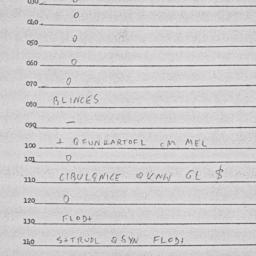 030 0
040 0
050 0
060 0
070 0
080 BLINCES
090 —
100 + QFUNKARTOFL CM MEL
101 0
110 CIBULQNICE QUNW GL $
120 0
130 FLOD+
140 S+TRUDL QSYN FLOD+